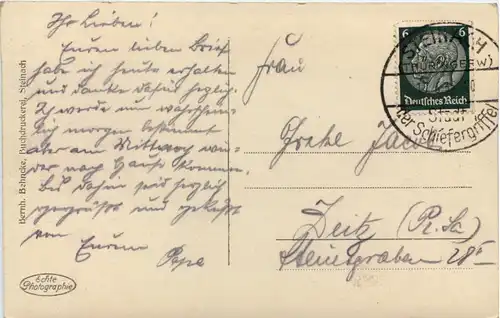 Ihr Lieben!
Euren lieben Brief
habe ich heute erhalten
und danke dafür herzlich.
Ich werde nun wahrschein-
lich morgen bestimmt
aber am Mittwoch wie-
der nach Hause kommen.
Bis dahin seid herzlich
gegrüsst und geküsst
von Eurem
Papa
Bernh. Behncke, Buchdruckerei, Steinach
echte
Photographie
6 6
Deutsches Reich
STEINACH
Stadt
der Schiefergriffel
Frau
Grete
Zeitz (Pr. Sa)
Steinsgraben 28